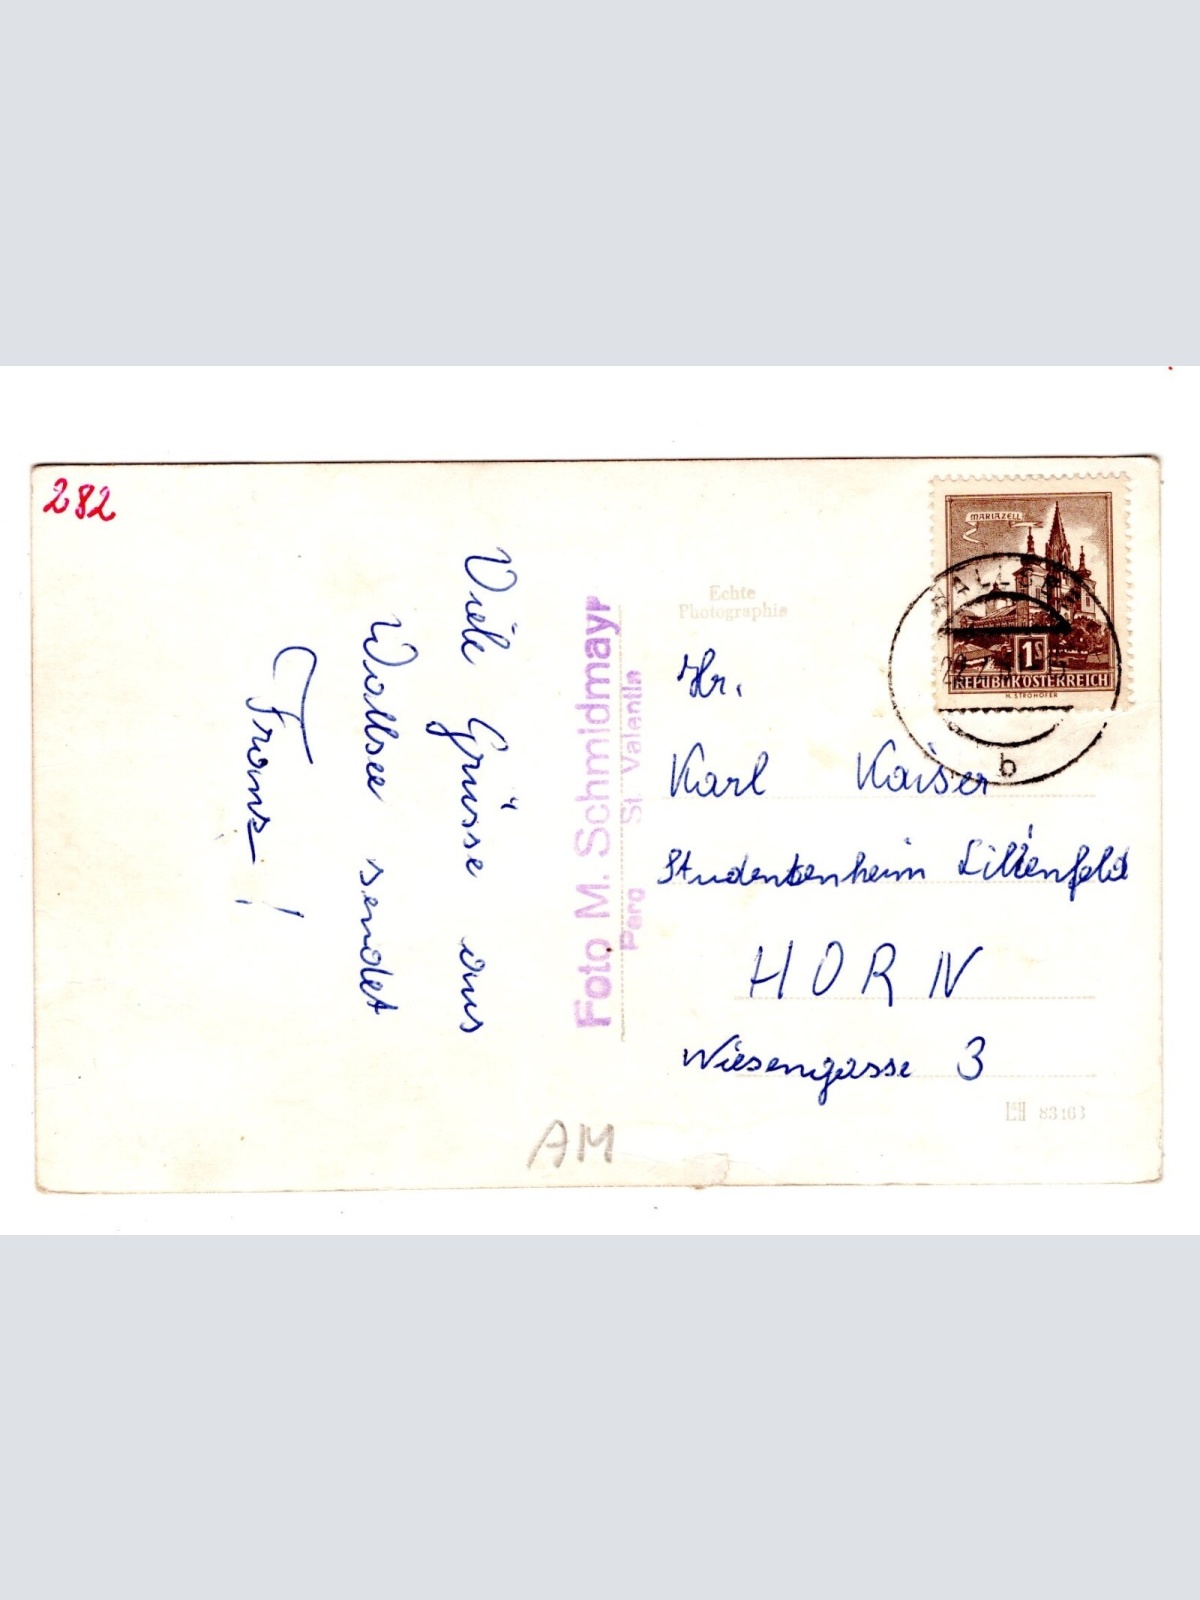 282
Viele Grüsse aus
Wallsee sendet
Franz!
Foto M. Schmidmayr
Perg St. Valentin
Echte
Photographie
MARIAZELL
1S
REPUBLIK ÖSTERREICH
H. STROHOFER
22
b
Hr.
Karl Kaiser
Studentenheim Lilienfeld
HORN
Wiesengasse 3
83163
AM